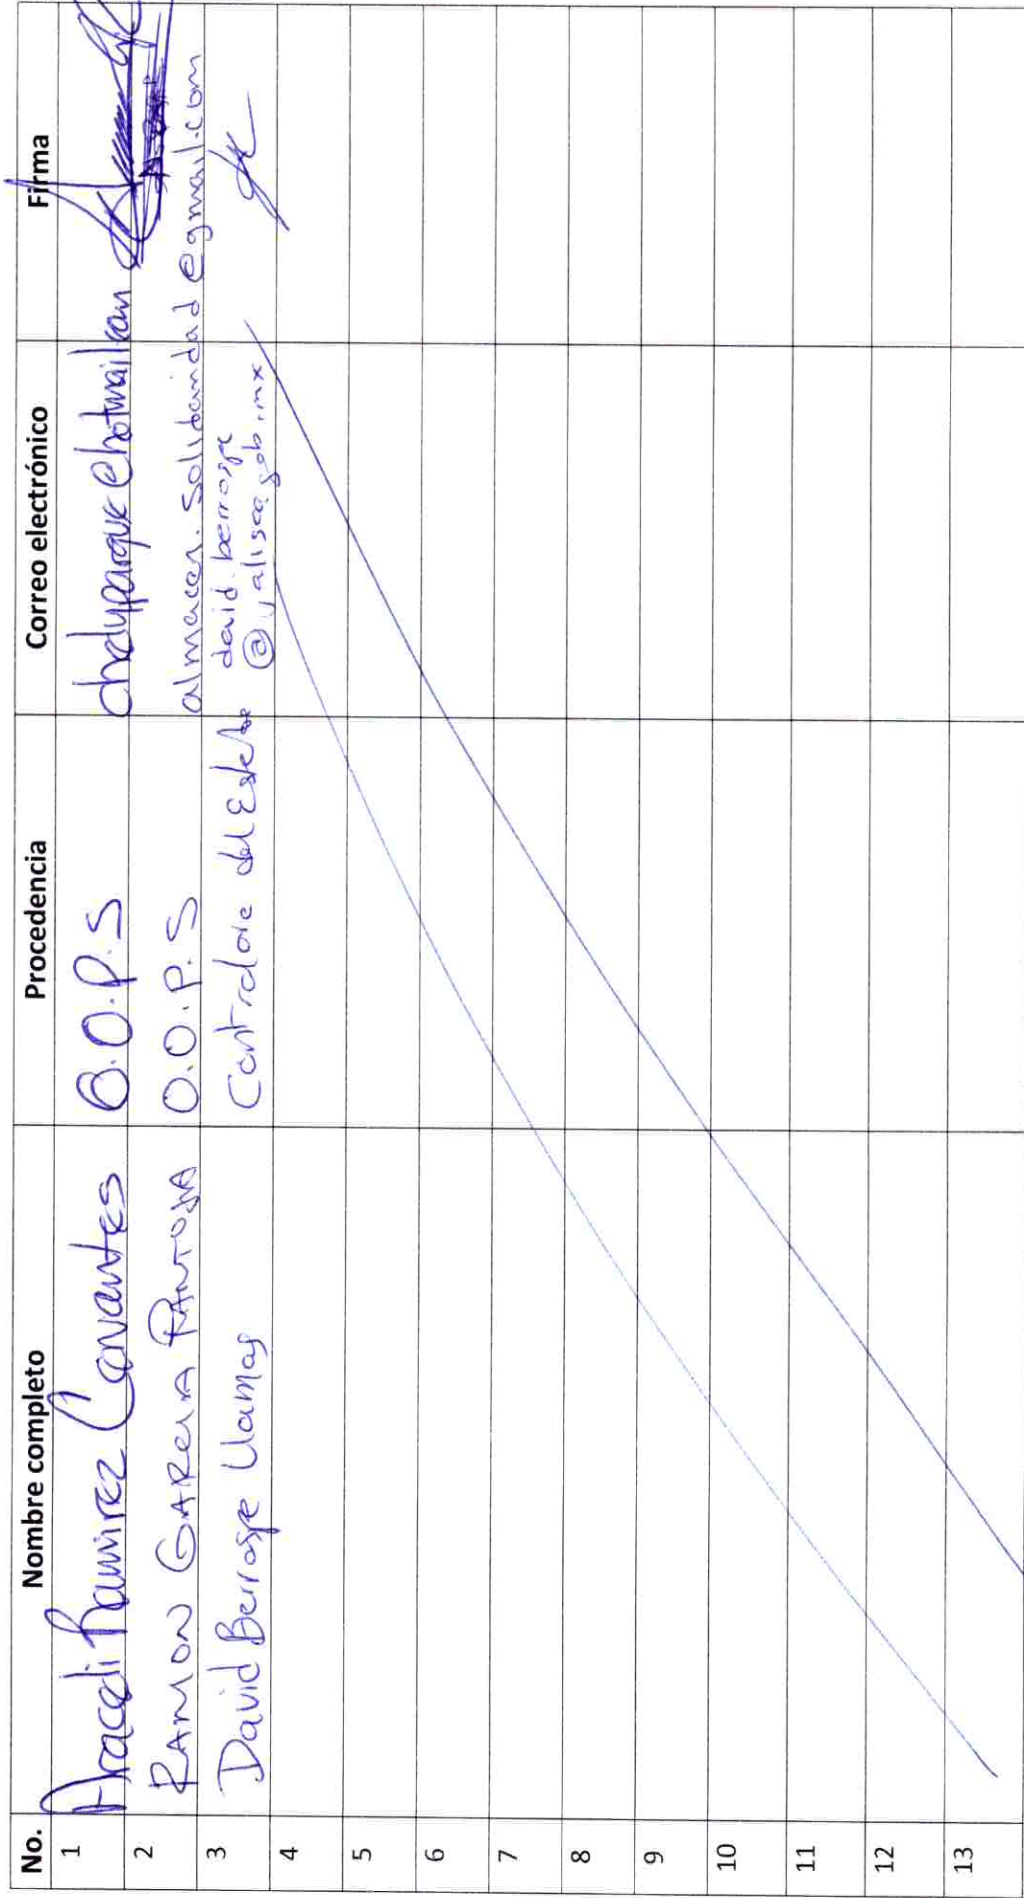 No. Nombre completo Procedencia Correo electrónico Firma
1 Araceli Ramirez Cervantes O.O.P.S chelyparque@hotmail.com
2 RAMON GARCIA PANTOJA O.O.P.S almacen.solidaridad@gmail.com
3 David Berrospe Llamas Contraloria del Estado david.berrospe
@jalisco.gob.mx
4
5
6
7
8
9
10
11
12
13